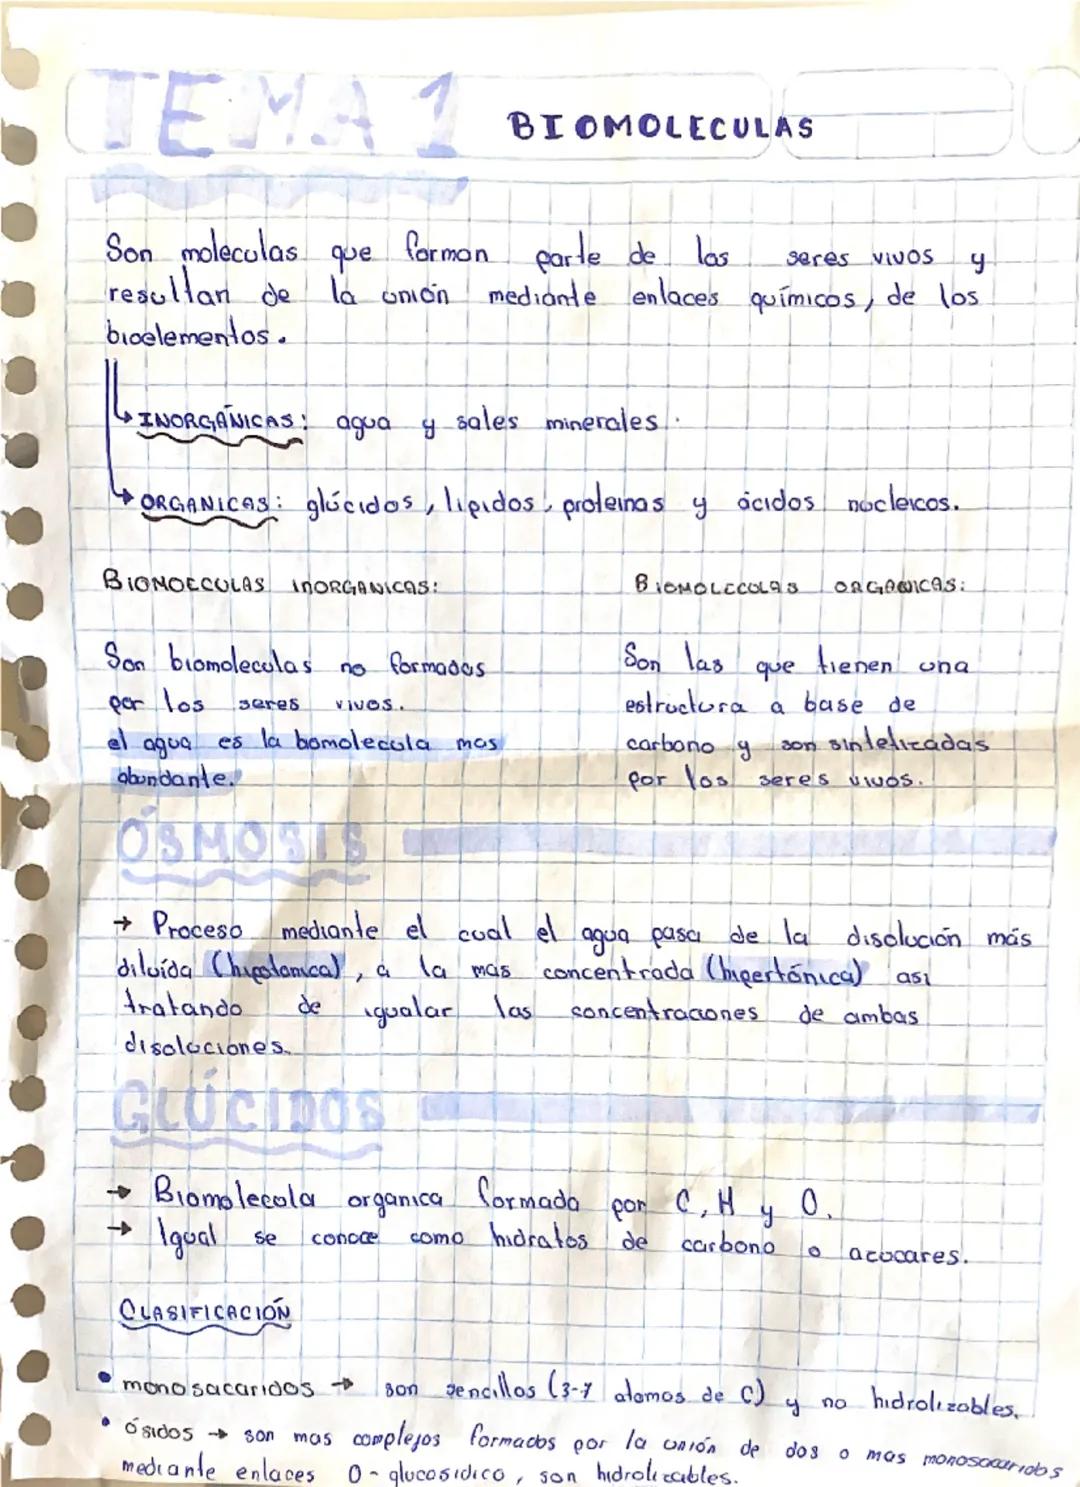 TEMA 1 BIOMOLECULAS
Son moleculas que forman parte de los seres vivos y
resultan de la unión mediante enlaces químicos, de los
bioelementos.
INORGÁNICAS: agua y sales minerales.
ORGANICAS: glúcidos, lipidos, proteinas y ácidos nucleicos.
BIOMOECULAS INORGANICAS:
Son biomoleculas no formadas
por los seres vivos.
el agua es la bomolecula mas
abundante.
BIOMOLECULAS ORGANICAS:
Son las que tienen una
estructura a base de
carbono y son sintetizadas
por los seres vivos.
ÓSMOSIS
→ Proceso mediante el cual el agua pasa de la disolución más
diluída (hipotonica), a la mas concentrada (hipertónica) asi
tratando de igualar las concentraciones de ambas
disoluciones.
GLÚCIDOS
→ Biomolecula organica formada por C, H y O.
→ Igual se conoce como hidratos de carbono o azucares.
CLASIFICACIÓN
• monosacaridos → son sencillos (3-7 atomos de C) y no hidrolizables.
• ósidos → son mas complejos formados por la unión de dos o mas monosacaridos
mediante enlaces O-glucosidico, son hidrolizables.